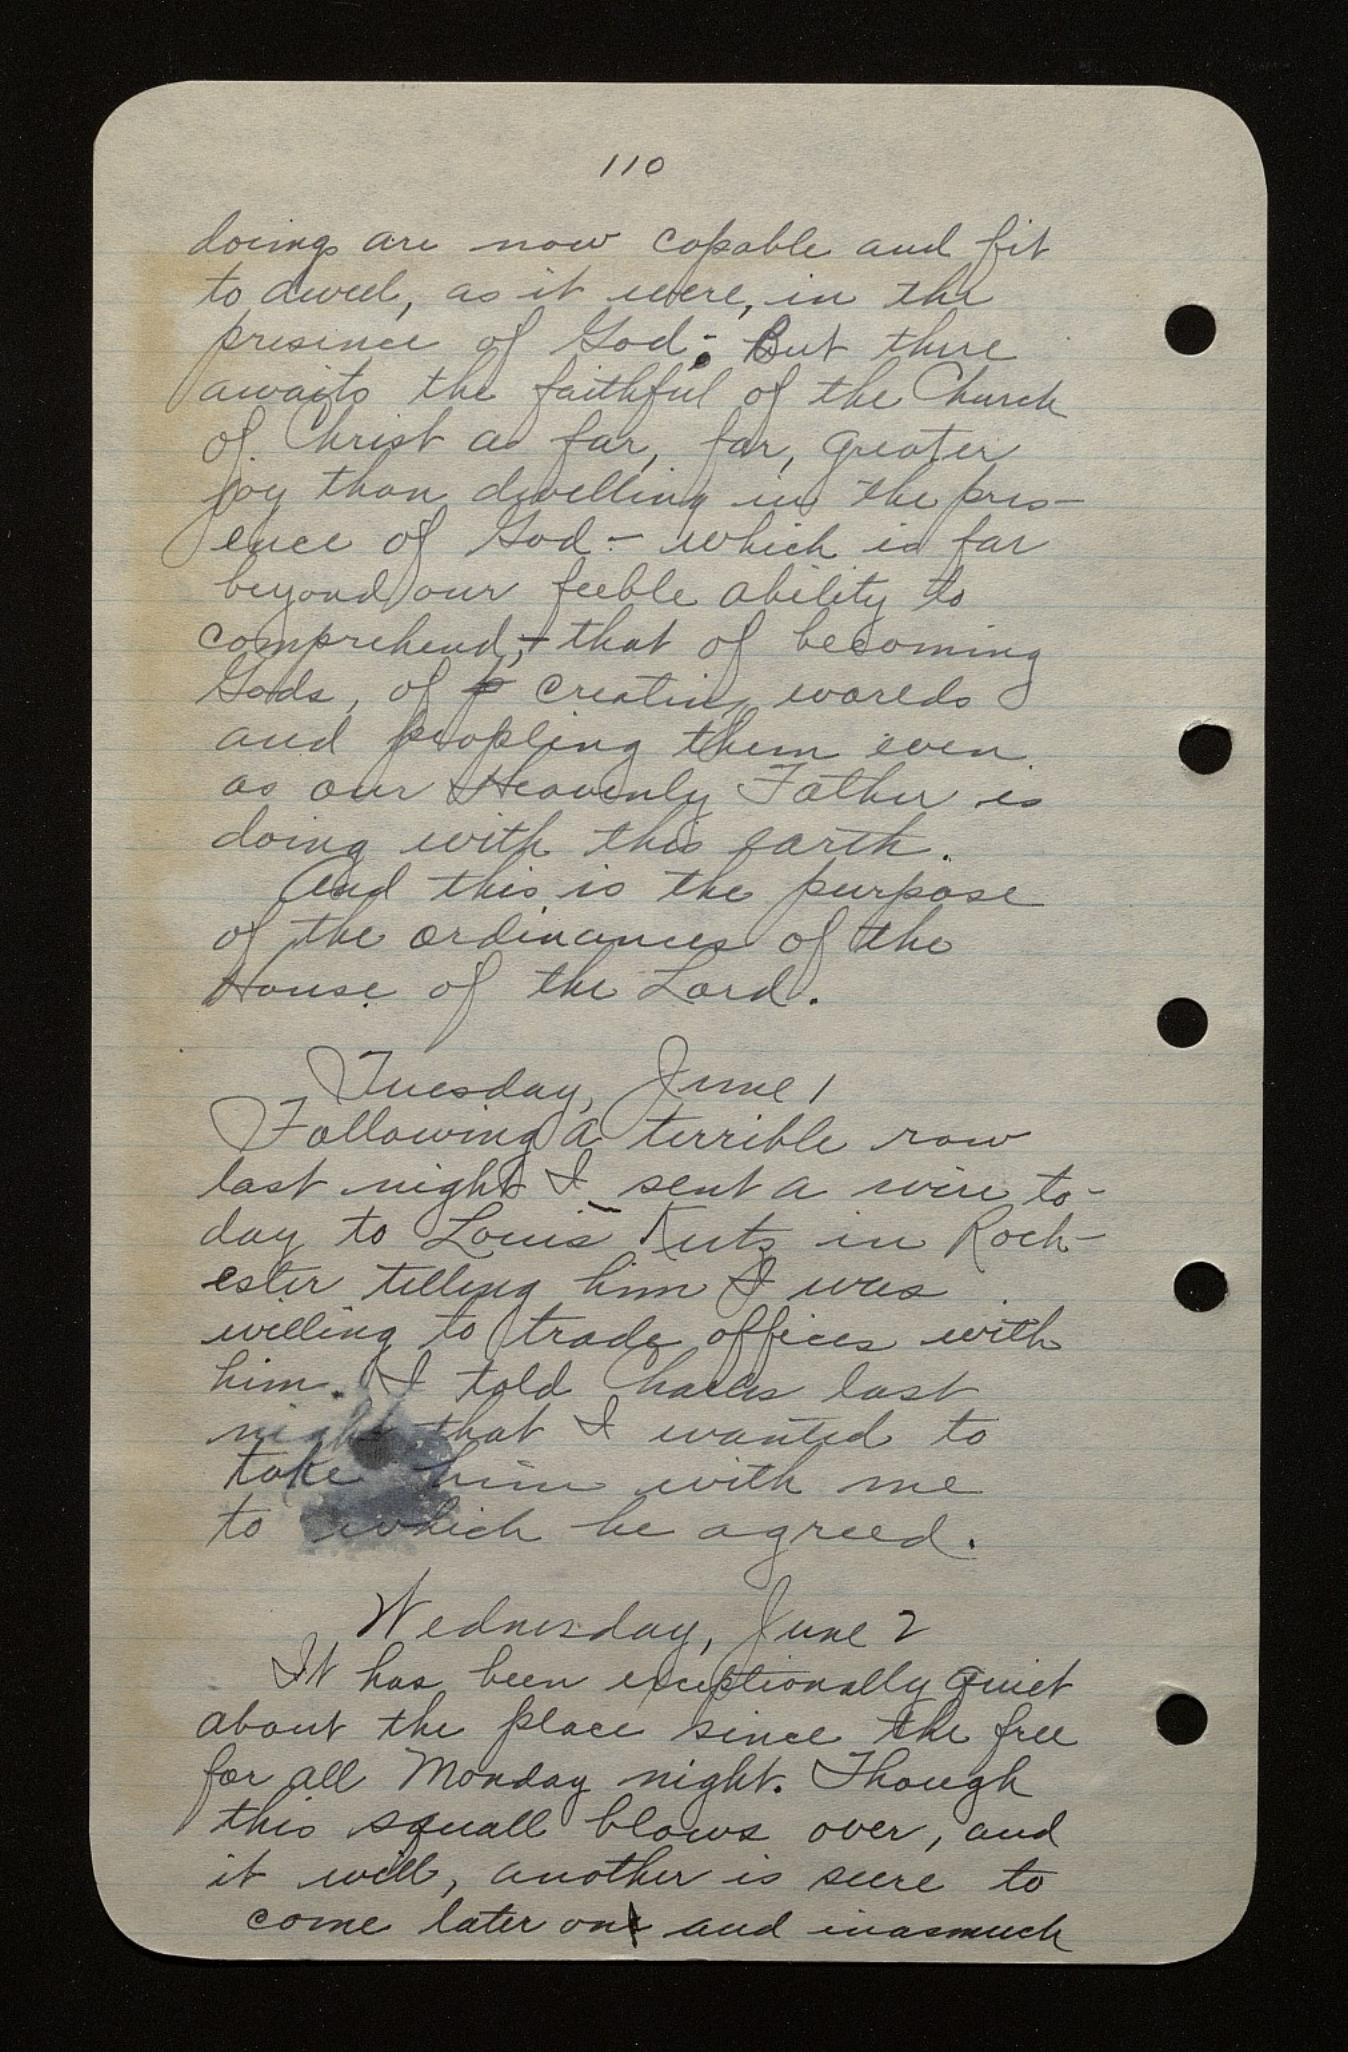 110
doings are now capable and fit
to dwell, as it were, in the
presence of God; But there
awaits the faithful of the Church
of Christ a far, far, greater
joy than dwelling in the pres-
ence of God - which is far
beyond our feeble ability to
comprehend, - that of becoming
Gods, of creating worlds
and peopling them even
as our Heavenly Father is
doing with this earth.
And this is the purpose
of the ordinances of the
House of the Lord.
Tuesday, June 1
Following a terrible row
last night I sent a wire to-
day to Louis Kutz in Roch-
ester telling him I was
willing to trade offices with
him. I told Charles last
night that I wanted to
take him with me
to which he agreed.
Wednesday, June 2
It has been exceptionally quiet
about the place since the free
for all Monday night. Though
this squall blows over, and
it will, another is sure to
come later on and inasmuch